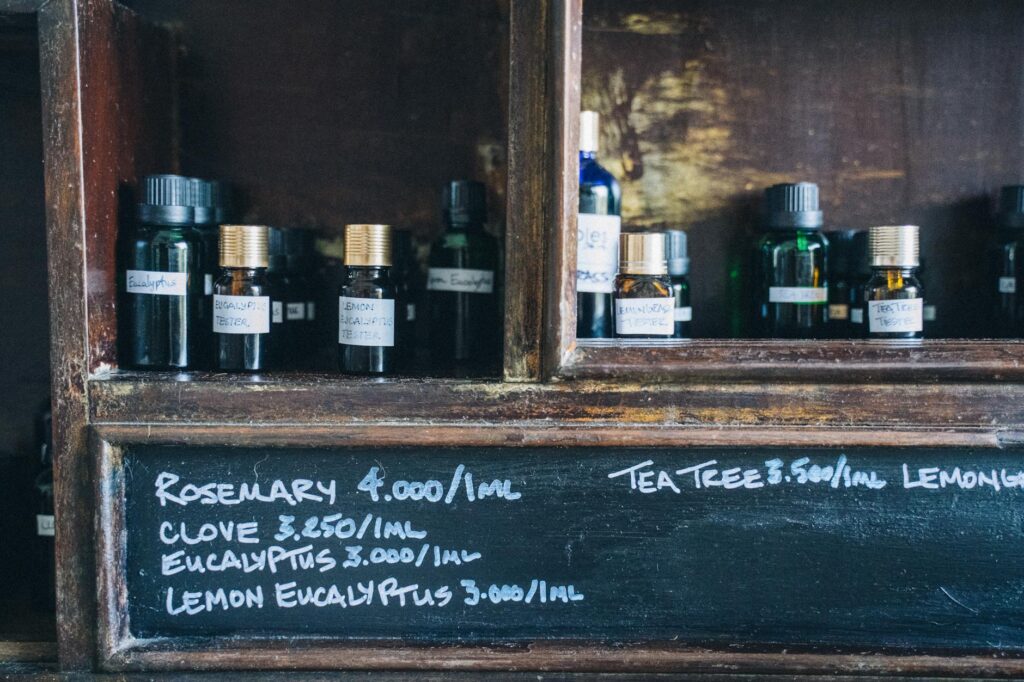 Eucalyptus
EUCALYPTUS
TESTER
LEMON
EUCALYPTUS
TESTER
Eucalyptus
LEMONGRASS
TESTER
TEA TREE
TESTER
ROSEMARY 4.000/1ML
CLOVE 3.250/1ML
EUCALYPTUS 3.000/1ML
LEMON EUCALYPTUS 3.000/1ML
TEA TREE 3.500/1ML